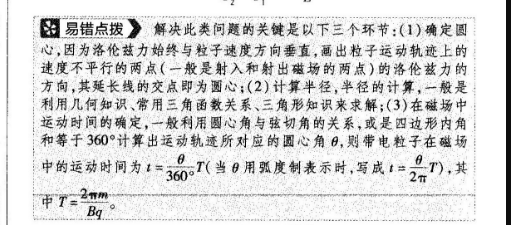 易错点拨 解决此类问题的关键是以下三个环节:(1)确定圆
心,因为洛伦兹力始终与粒子速度方向垂直,画出粒子运动轨迹上的
速度不平行的两点(一般是射入和射出磁场的两点)的洛伦兹力的
方向,其延长线的交点即为圆心;(2)计算半径,半径的计算,一般是
利用几何知识、常用三角函数关系、三角形知识来求解;(3)在磁场中
运动时间的确定,一般利用圆心角与弦切角的关系,或是四边形内角
和等于360°计算出运动轨迹所对应的圆心角θ,则带电粒子在磁场
中的运动时间为t=θ/360°T(当θ用弧度制表示时,写成t=θ/2πT),其
中T=2πm/Bq。